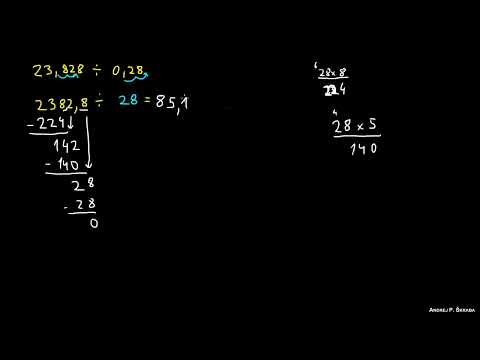 23,828 ÷ 0,28
2382,8 ÷ 28 = 85,1
- 224
142
- 140
28
- 28
0
6
28 × 8
224
4
28 × 5
140
ANDREJ P. ŠKRABA